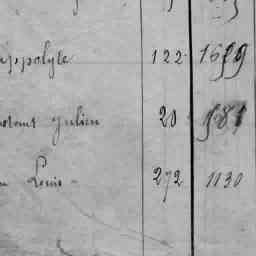 ppolyte 122 1659
Julien 20 581
Louis 272 1130